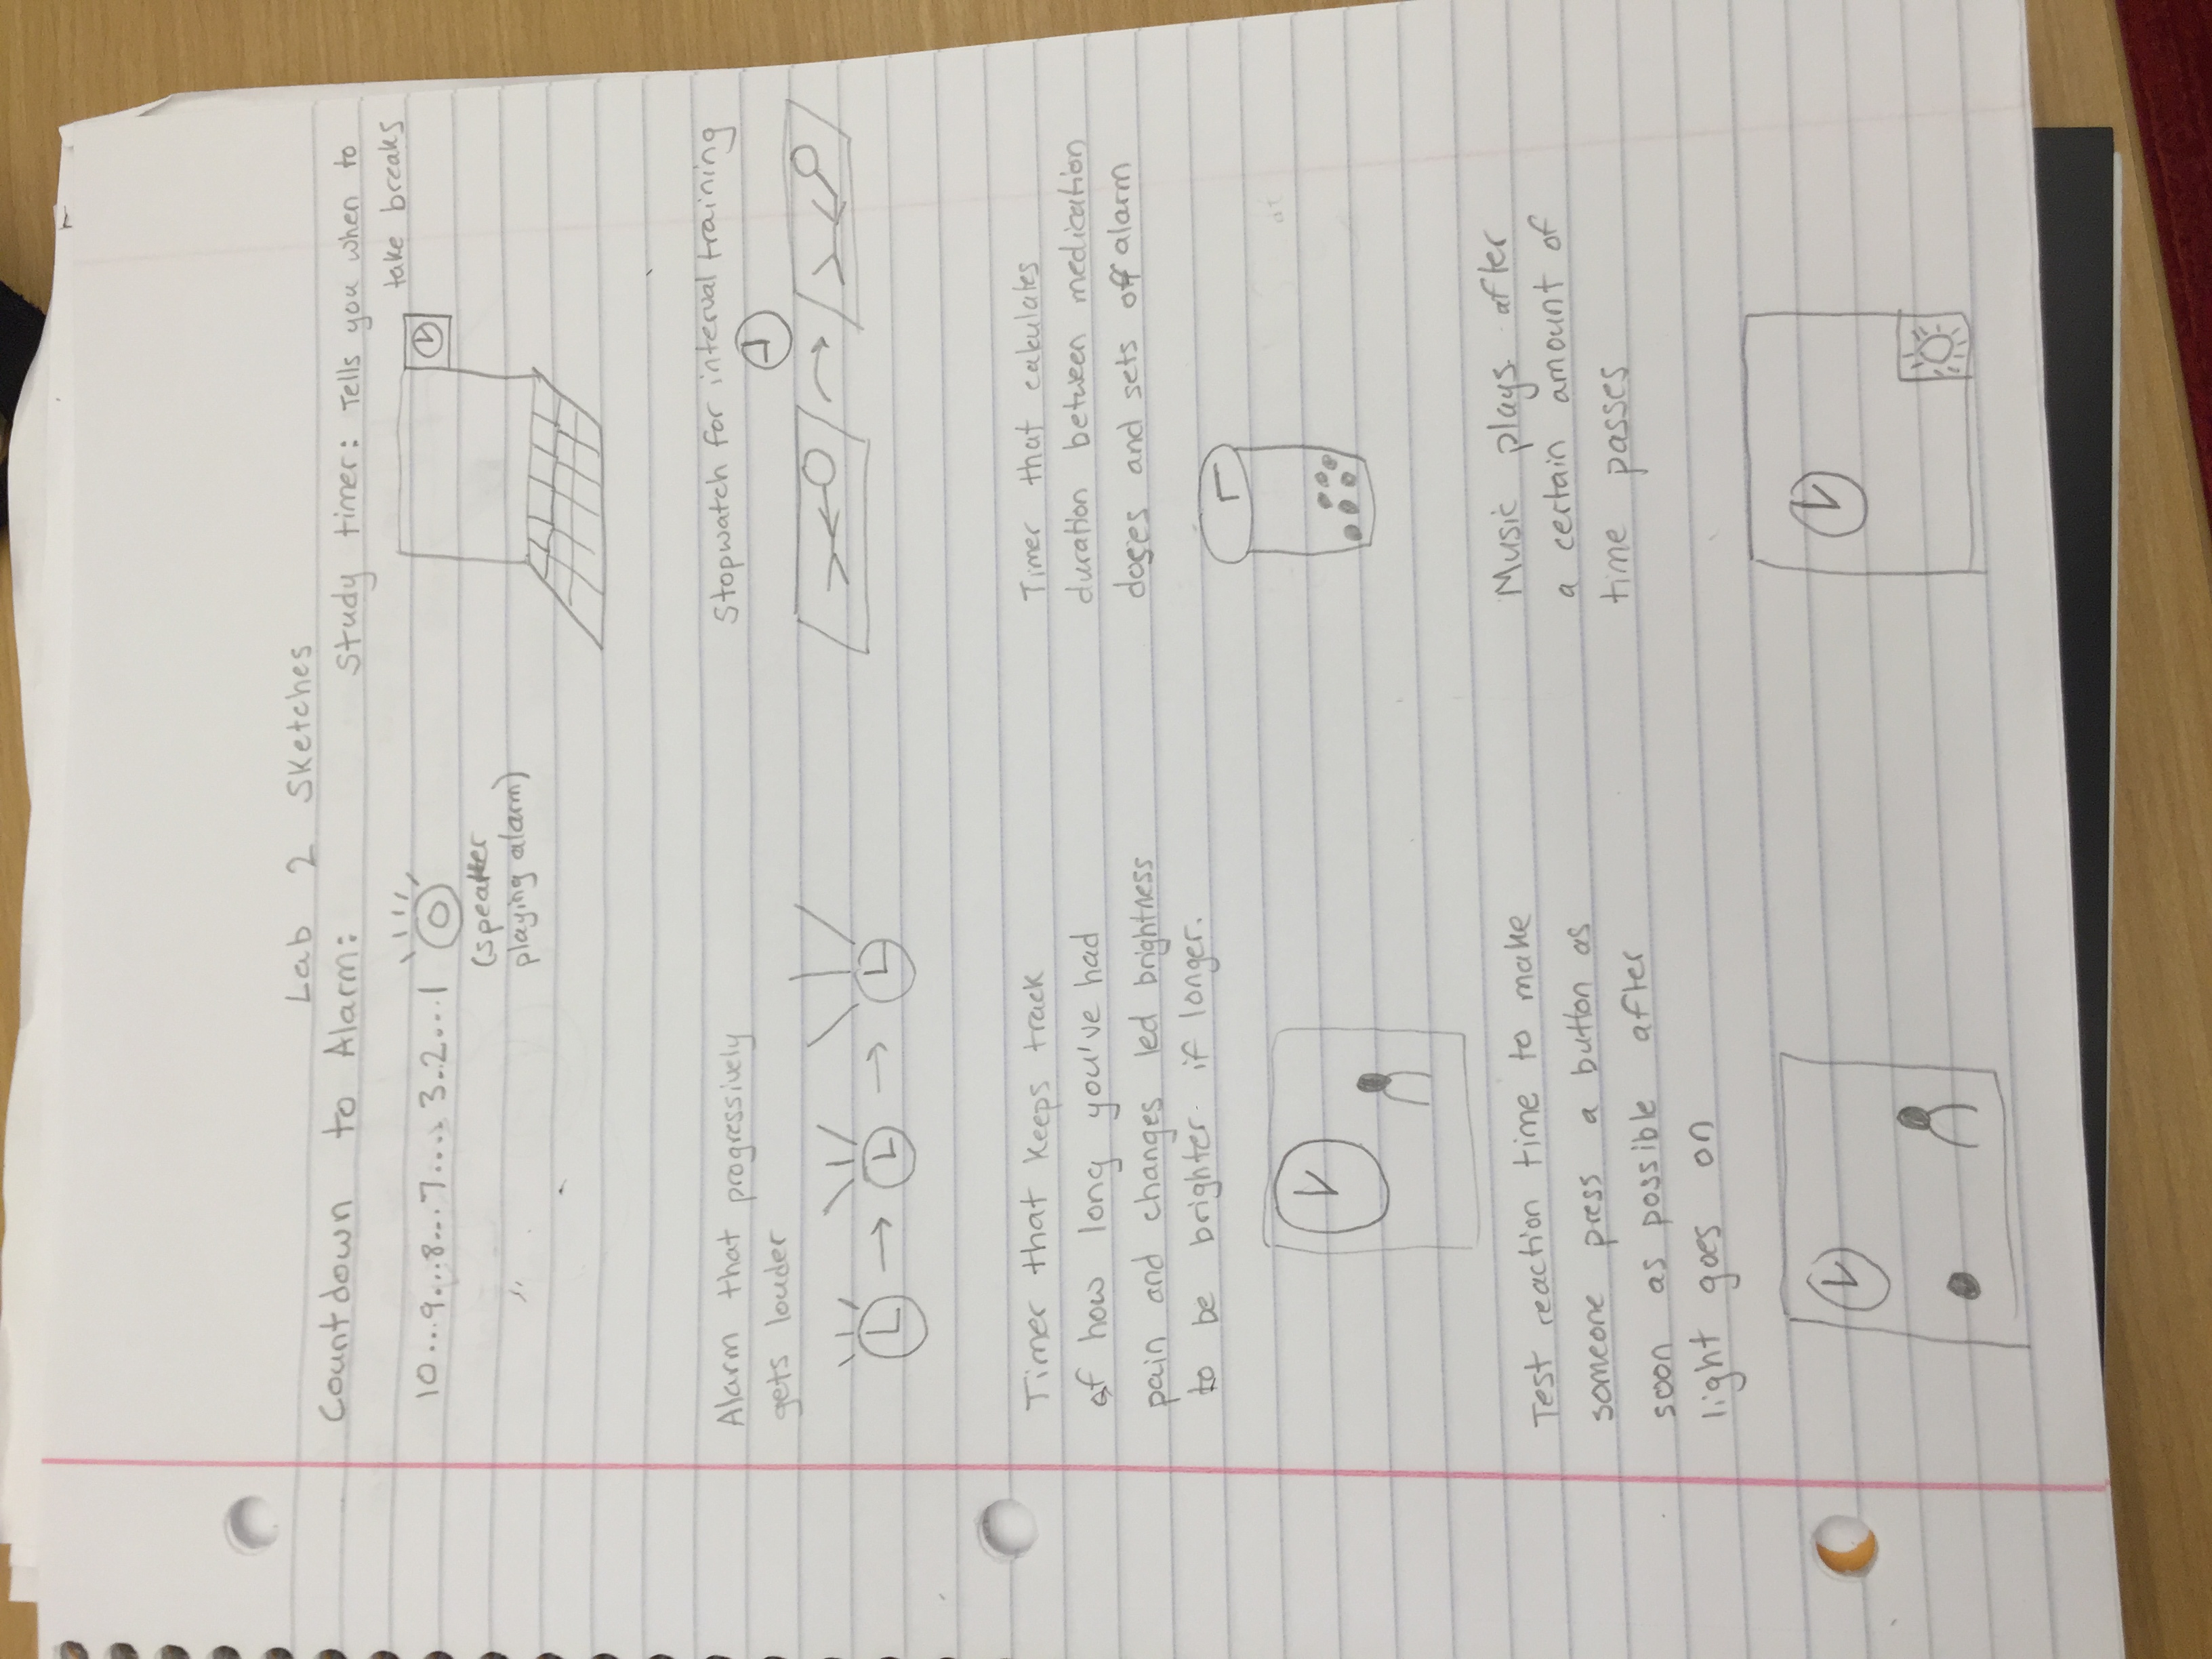 Lab 2 Sketches
Countdown to Alarm:
10...9...8...7..... 3..2...1
(speaker
playing alarm)
Study timer: Tells you when to
take breaks
Alarm that progressively
gets louder
Stopwatch for interval training
Timer that keeps track
of how long you've had
pain and changes led brightness
to be brighter if longer.
Timer that calculates
duration between medication
doses and sets off alarm
Test reaction time to make
someone press a button as
soon as possible after
light goes on
Music plays after
a certain amount of
time passes